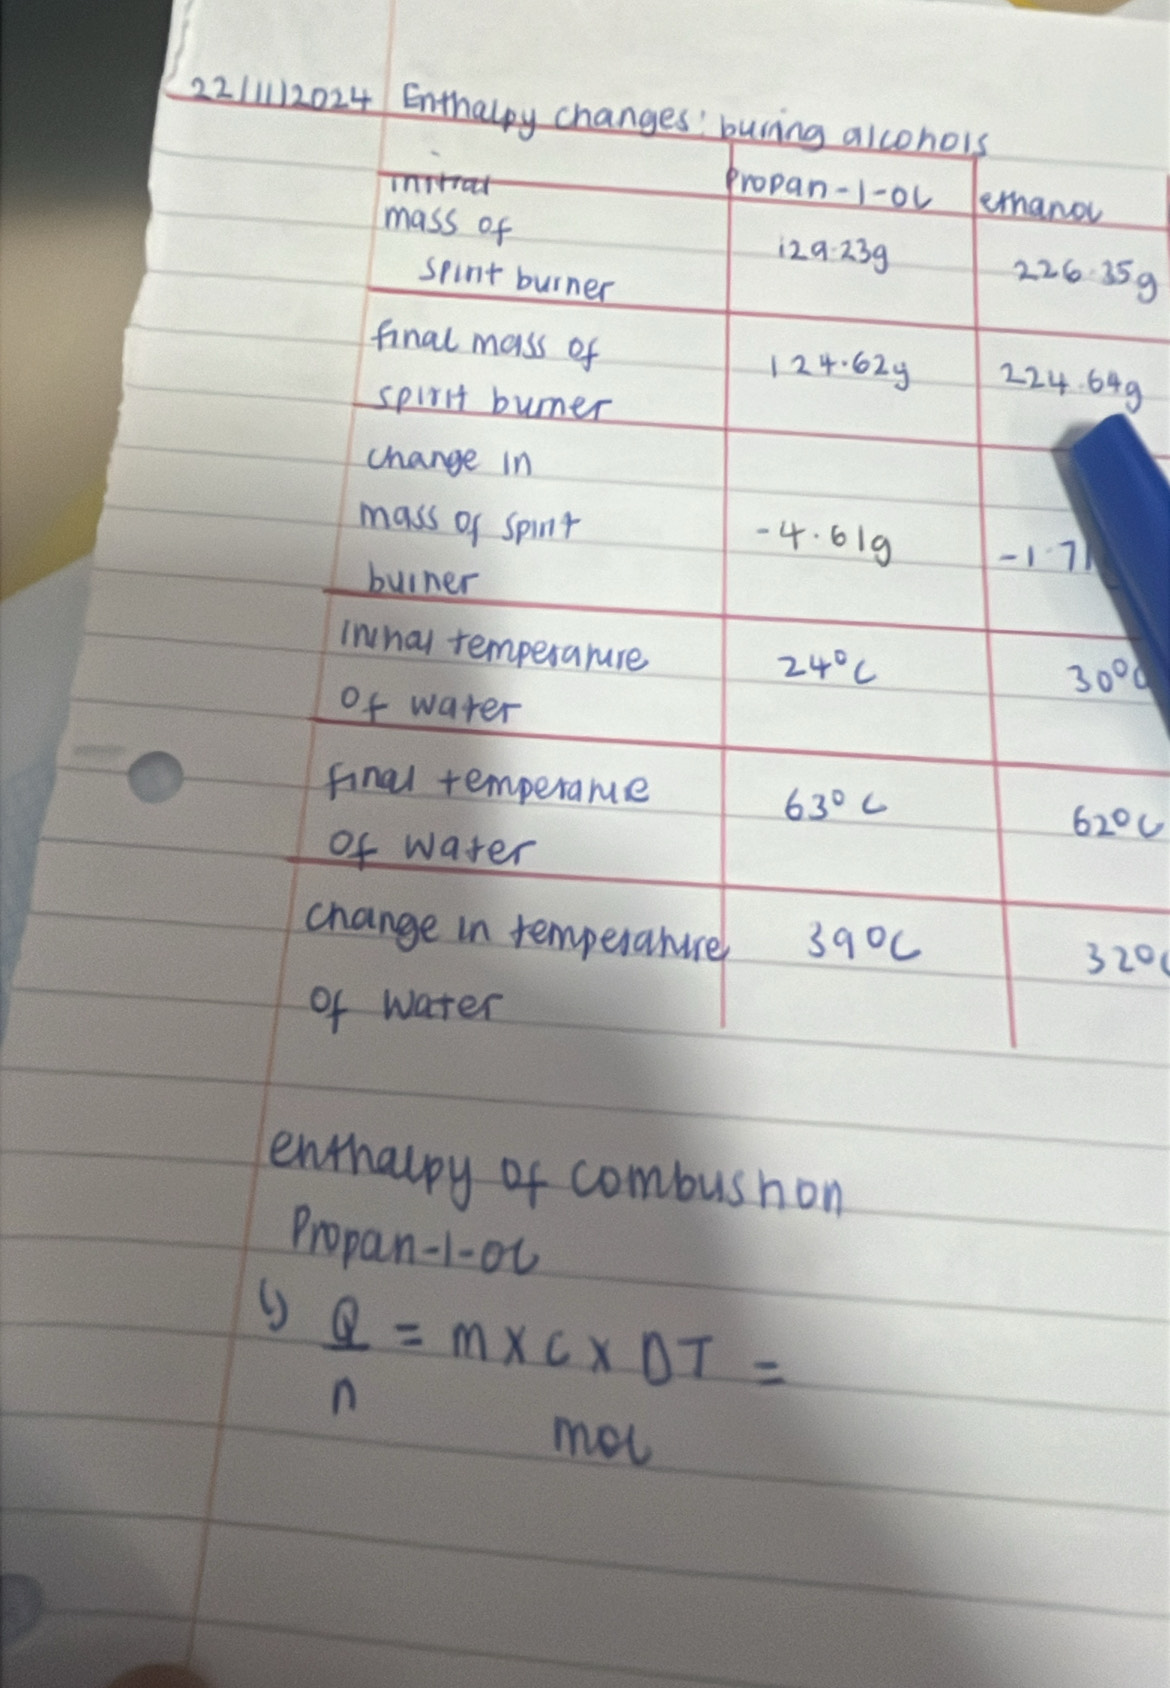 22/11/2024 Enthalpy changes: buring alcohols
initial Propan-1-ol ethanol
mass of 129.23g 226.35g
spirit burner
final mass of 124.62g 224.64g
spirit burner
change in
mass of spirit -4.61g -1.71
burner
Initial temperature 24°C 30°C
of water
final temperature 63°C 62°C
of water
change in temperature 39°C 32°C
of water
enthalpy of combustion
Propan-1-ol
↳ Q = m x c x ΔT =
n mol